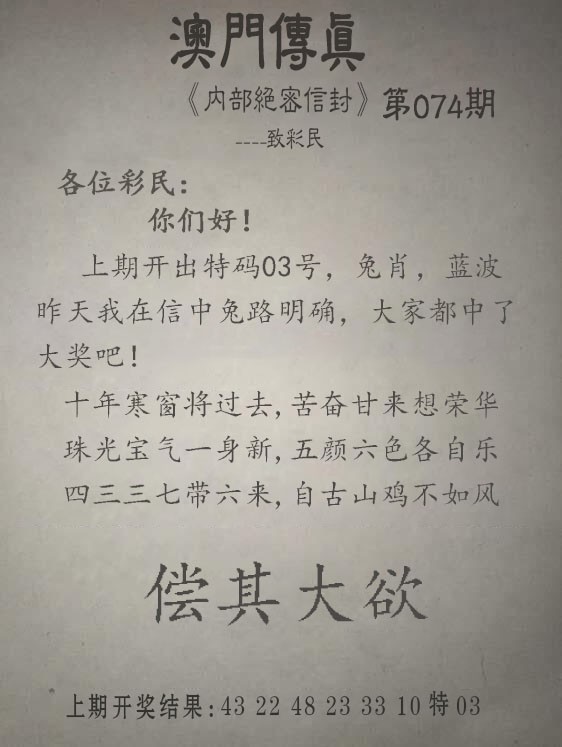 澳門傳眞
《内部絕密信封》第074期
----致彩民
各位彩民：
你们好！
上期开出特码03号，兔肖，蓝波
昨天我在信中兔路明确，大家都中了
大奖吧！
十年寒窗将过去,苦奋甘来想荣华
珠光宝气一身新,五颜六色各自乐
四三三七带六来,自古山鸡不如风
偿其大欲
上期开奖结果:43 22 48 23 33 10 特 03